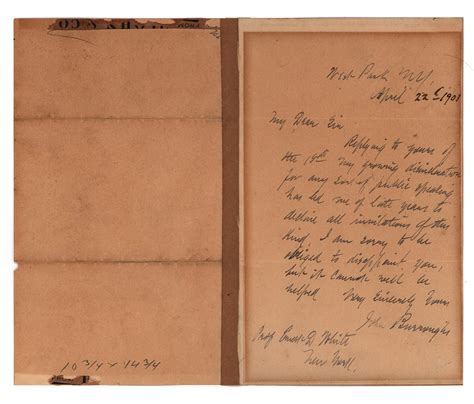 West Park N.Y.
April 22 1901
My Dear Sir
Replying to yours of
the 18th My growing disinclination
for any sort of public speaking
has led me of late years to
decline all invitations of this
kind. I am sorry to be
obliged to disappoint you,
but it cannot well be
helped
Very Sincerely Yours
John Burroughs
Prof D White
New York.
10 3/4 x 14 3/4